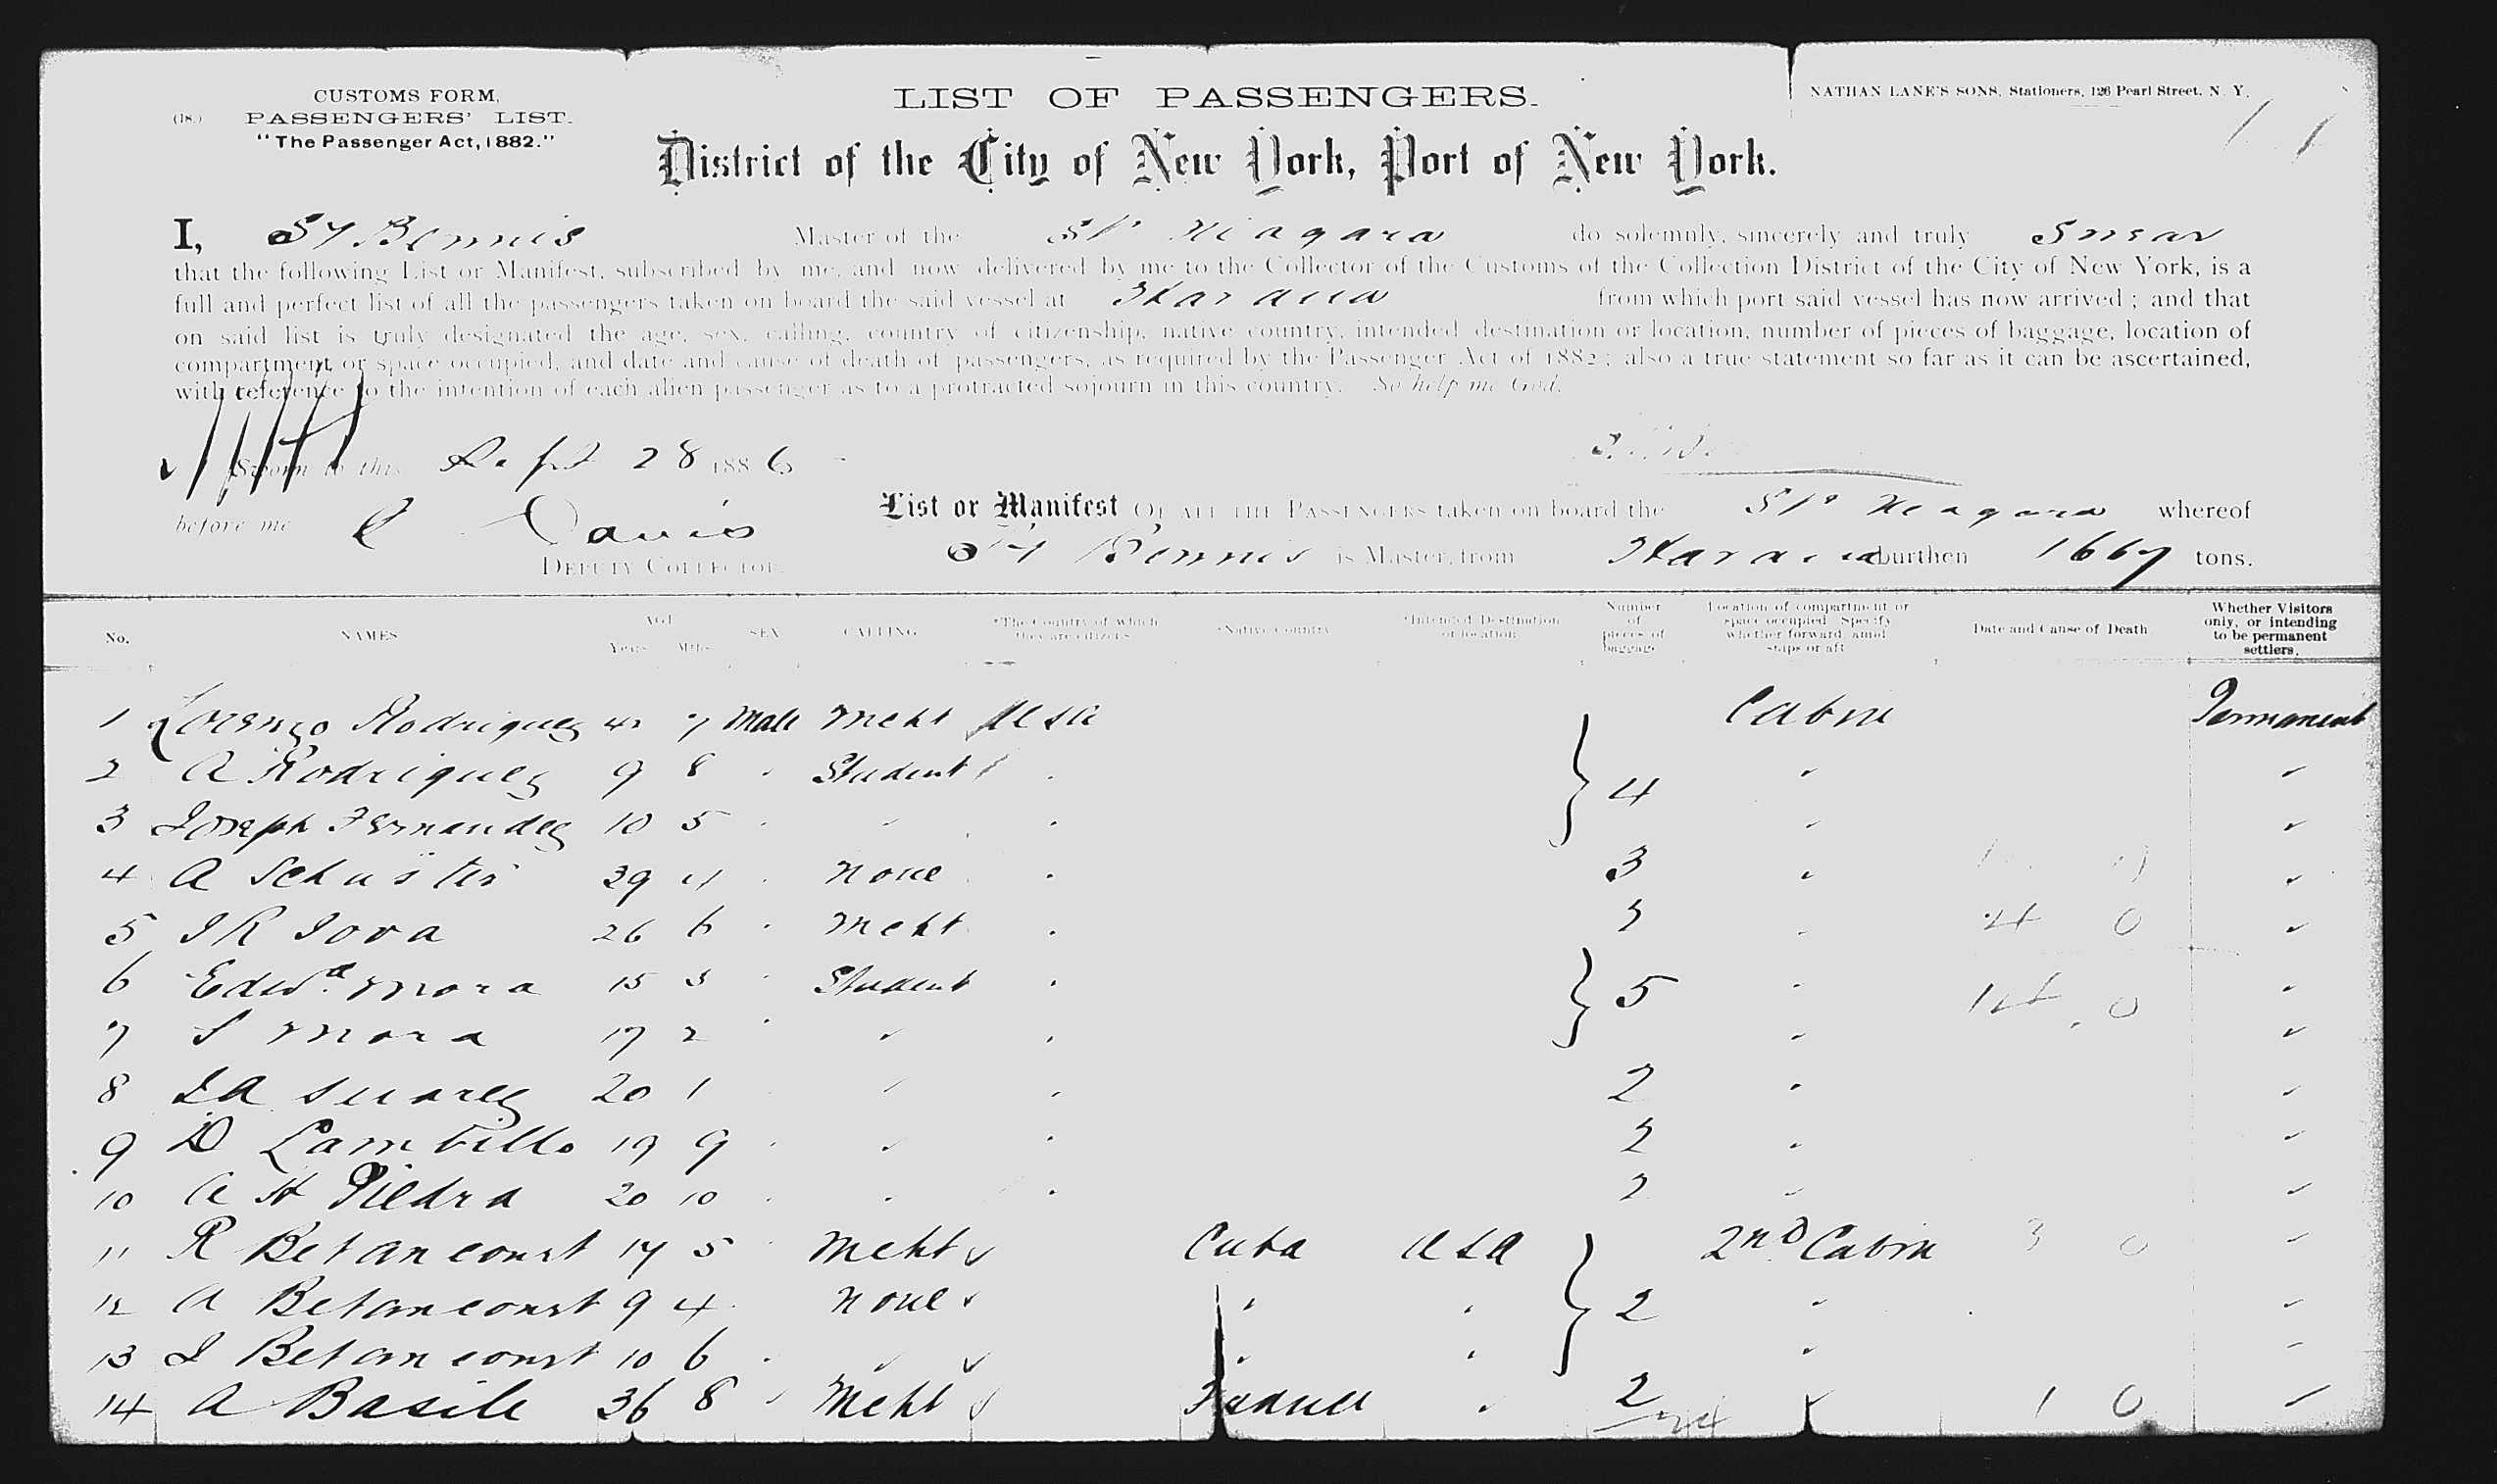 CUSTOMS FORM,
(18.) PASSENGERS' LIST.
"The Passenger Act, 1882."
LIST OF PASSENGERS.
NATHAN LANE'S SONS, Stationers, 126 Pearl Street, N. Y.
District of the City of New York, Port of New York.
I, Bennis Master of the SP Niagara do solemnly, sincerely and truly Swear
that the following List or Manifest, subscribed by me, and now delivered by me to the Collector of the Customs of the Collection District of the City of New York, is a
full and perfect list of all the passengers taken on board the said vessel at Havana from which port said vessel has now arrived; and that
on said list is truly designated the age, sex, calling, country of citizenship, native country, intended destination or location, number of pieces of baggage, location of
compartment or space occupied, and date and cause of death of passengers, as required by the Passenger Act of 1882; also a true statement so far as it can be ascertained,
with reference to the intention of each alien passenger as to a protracted sojourn in this country. So help me God.
Sworn to this Sept 28 1886
before me Davis
DEPUTY COLLECTOR.
List or Manifest OF ALL THE PASSENGERS taken on board the Niagara whereof
Bennis is Master, from Havana burthen 1667 tons.
No. NAMES AGE Years Mths SEX CALLING *The Country of which they are citizens *Native Country *Intended Destination or location Number of pieces of baggage Location of compartment or space occupied. Specify whether forward, amidships or aft Date and Cause of Death Whether Visitors only, or intending to be permanent settlers.
1 Lorenzo Rodriguez 42 7 Male Mcht USA Cabin Permanent
2 A Rodriguez 9 8 Student 4
3 Joseph Fernandez 10 5
4 A Schuster 39 4 None 3
5 J R Jova 26 6 Mcht 3 4 0
6 Edwd Mora 15 3 Student 5 14 0
7 S Mora 17 2
8 J A Suarez 20 1 2
9 D Cambillo 19 9 2
10 A H Piedra 20 10 2
11 R Betancourt 14 5 Mcht Cuba USA 2nd Cabin 3 0
12 A Betancourt 9 4 None 2
13 J Betancourt 10 6
14 A Basile 36 8 Mcht 2 1 0